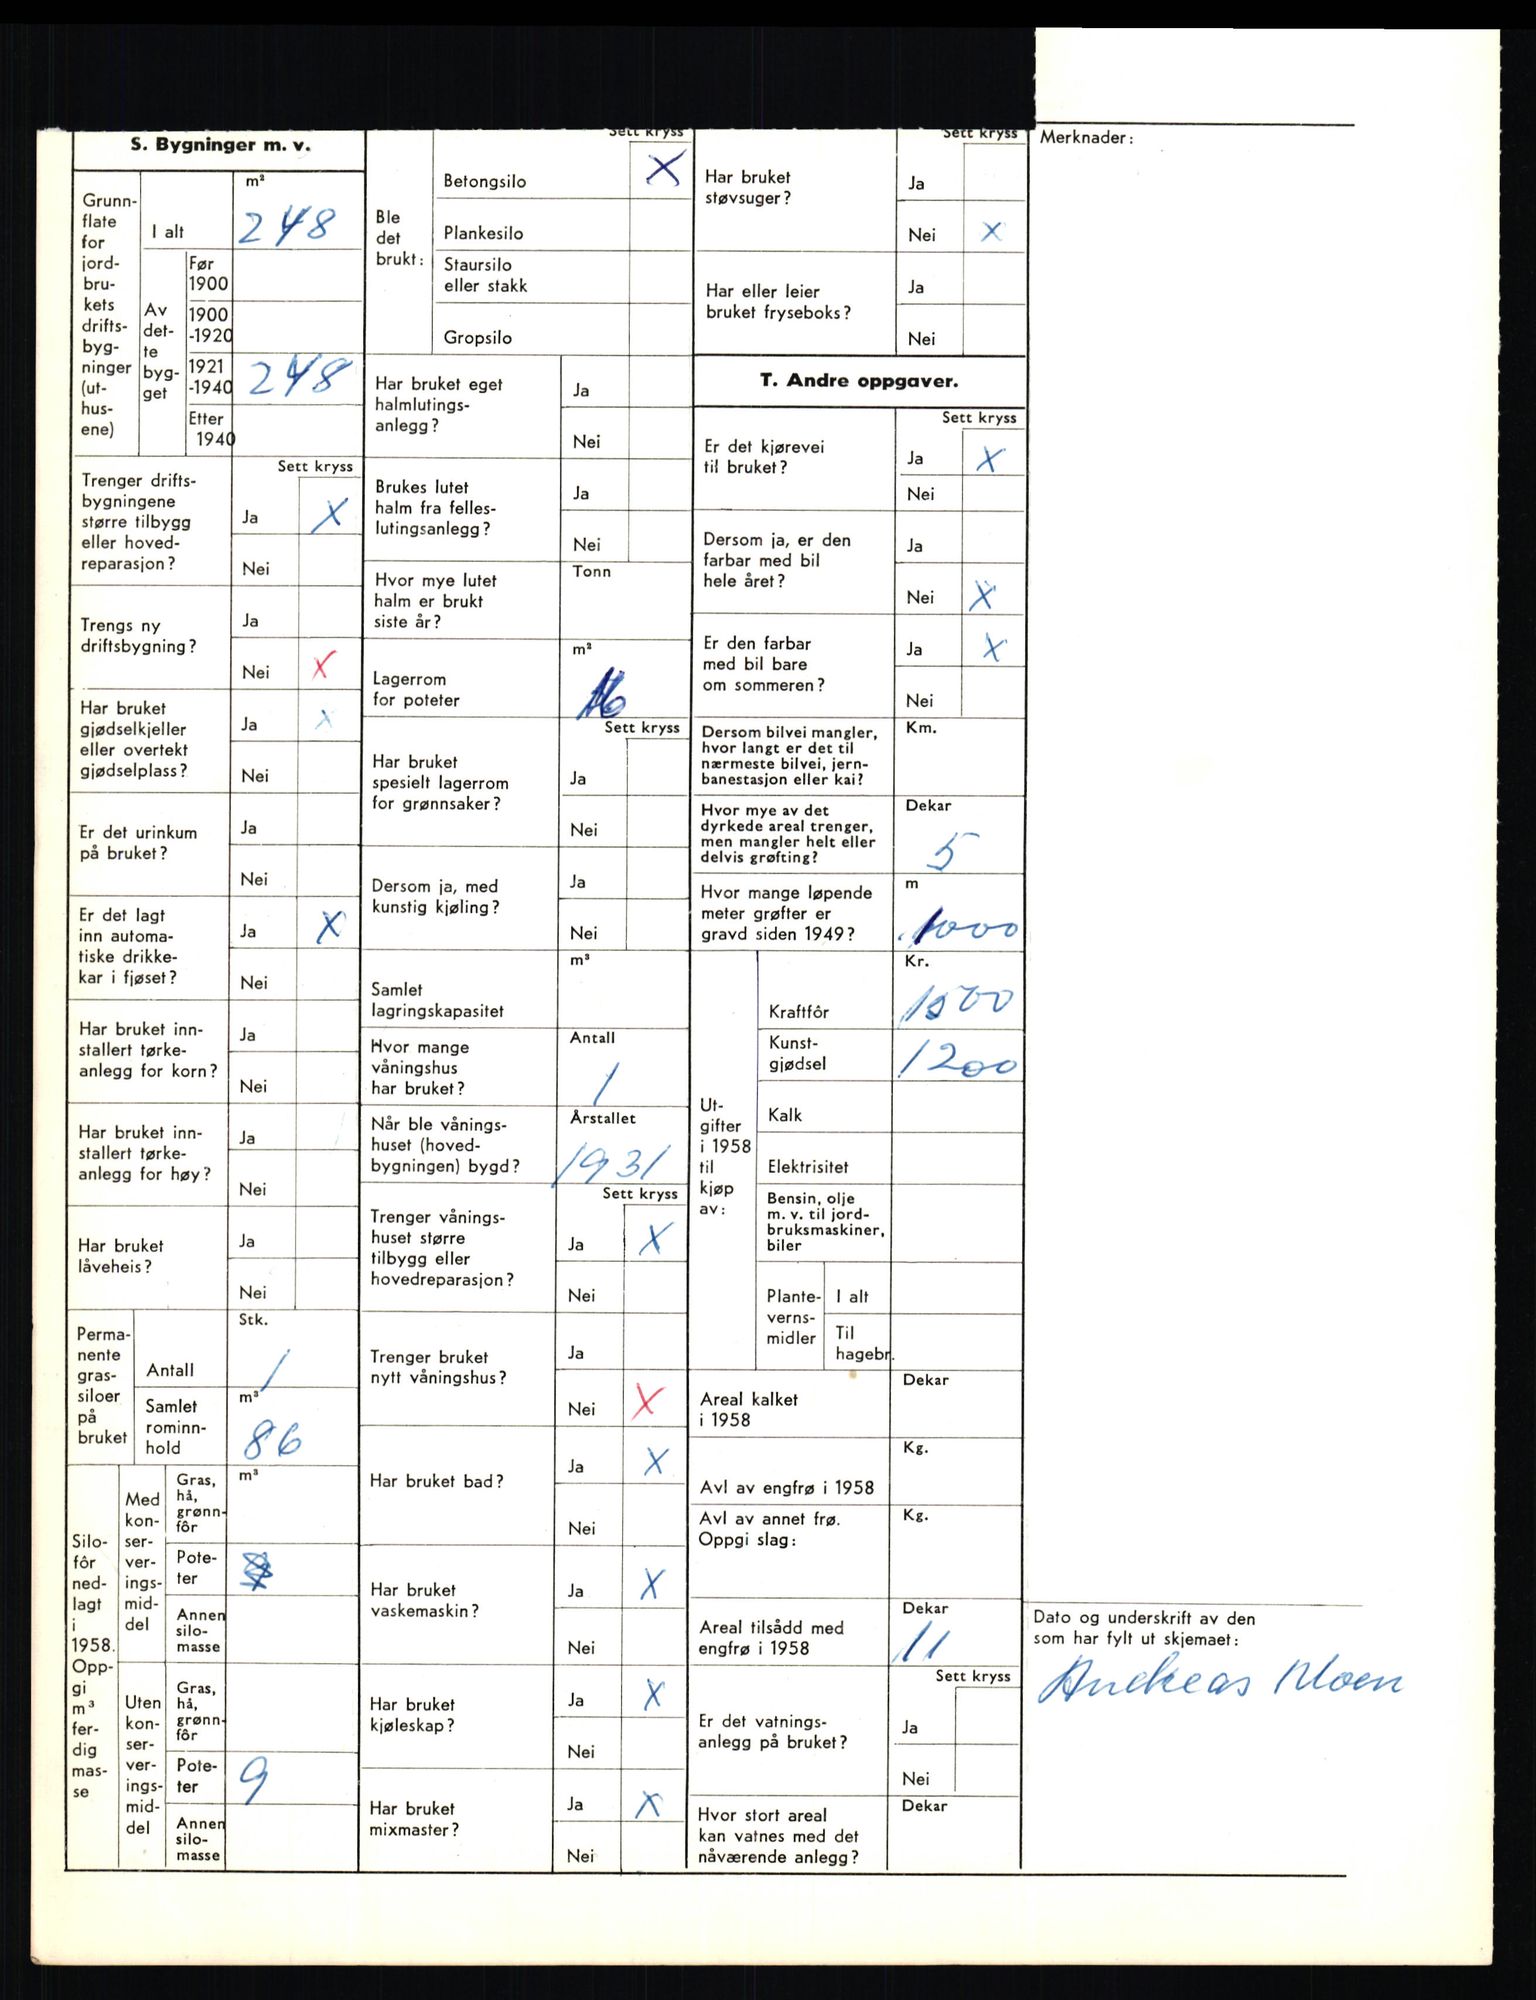 S. Bygninger m. v.
Grunn-
flate
for
jord-
bru-
kets
drifts-
byg-
ninger
(ut-
hus-
ene)
m²
I alt 248
Av
det-
te
byg-
get
Før
1900
1900
-1920
1921
-1940 248
Etter
1940
Sett kryss
Trenger drifts-
bygningene
større tilbygg
eller hoved-
reparasjon?
Ja X
Nei
Trengs ny
driftsbygning?
Ja
Nei X
Har bruket
gjødselkjeller
eller overtekt
gjødselplass?
Ja X
Nei
Er det urinkum
på bruket?
Ja
Nei
Er det lagt
inn automa-
tiske drikke-
kar i fjøset?
Ja X
Nei
Har bruket inn-
stallert tørke-
anlegg for korn?
Ja
Nei
Har bruket inn-
stallert tørke-
anlegg for høy?
Ja
Nei
Har bruket
låveheis?
Ja
Nei
Perma-
nente
gras-
siloer
på
bruket
Stk.
Antall 1
m³
Samlet
rominn-
hold 86
Silo-
fôr
ned-
lagt
i
1958.
Opp-
gi
m³
fer-
dig
mas-
se
Med
kon-
ser-
ver-
ings-
mid-
del
m³
Gras,
hå,
grønn-
fôr
Pote-
ter
Annen
silo-
masse
Uten
kon-
ser-
ver-
ings-
mid-
del
Gras,
hå,
grønn-
fôr
Pote-
ter 9
Annen
silo-
masse
Sett kryss
Ble
det
brukt:
Betongsilo X
Plankesilo
Staursilo
eller stakk
Gropsilo
Har bruket eget
halmlutings-
anlegg?
Ja
Nei
Brukes lutet
halm fra felles-
lutingsanlegg?
Ja
Nei
Hvor mye lutet
halm er brukt
siste år?
Tonn
Lagerrom
for poteter
m³
Sett kryss
Har bruket
spesielt lagerrom
for grønnsaker?
Ja
Nei
Dersom ja, med
kunstig kjøling?
Ja
Nei
Samlet
lagringskapasitet
m³
Hvor mange
våningshus
har bruket?
Antall
1
Når ble vånings-
huset (hoved-
bygningen) bygd?
Årstallet
1931
Sett kryss
Trenger vånings-
huset større
tilbygg eller
hovedreparasjon?
Ja X
Nei
Trenger bruket
nytt våningshus?
Ja
Nei X
Har bruket bad?
Ja X
Nei
Har bruket
vaskemaskin?
Ja X
Nei
Har bruket
kjøleskap?
Ja X
Nei
Har bruket
mixmaster?
Ja X
Nei
Sett kryss
Har bruket
støvsuger?
Ja
Nei X
Har eller leier
bruket fryseboks?
Ja
Nei
T. Andre oppgaver.
Sett kryss
Er det kjørevei
til bruket?
Ja X
Nei
Dersom ja, er den
farbar med bil
hele året?
Ja
Nei X
Er den farbar
med bil bare
om sommeren?
Ja X
Nei
Dersom bilvei mangler,
hvor langt er det til
nærmeste bilvei, jern-
banestasjon eller kai?
Km.
Hvor mye av det
dyrkede areal trenger,
men mangler helt eller
delvis grøfting?
Dekar
5
Hvor mange løpende
meter grøfter er
gravd siden 1949?
m
1000
Ut-
gifter
i 1958
til
kjøp
av:
Kr.
Kraftfôr 1500
Kunst-
gjødsel 1200
Kalk
Elektrisitet
Bensin, olje
m. v. til jord-
bruksmaskiner,
biler
Plante-
verns-
midler
I alt
Til
hagebr.
Areal kalket
i 1958
Dekar
Avl av engfrø i 1958
Kg.
Avl av annet frø.
Oppgi slag:
Kg.
Areal tilsådd med
engfrø i 1958
Dekar
11
Sett kryss
Er det vatnings-
anlegg på bruket?
Ja
Nei
Hvor stort areal
kan vatnes med det
nåværende anlegg?
Dekar
Merknader:
Dato og underskrift av den
som har fylt ut skjemaet:
Andreas Moen